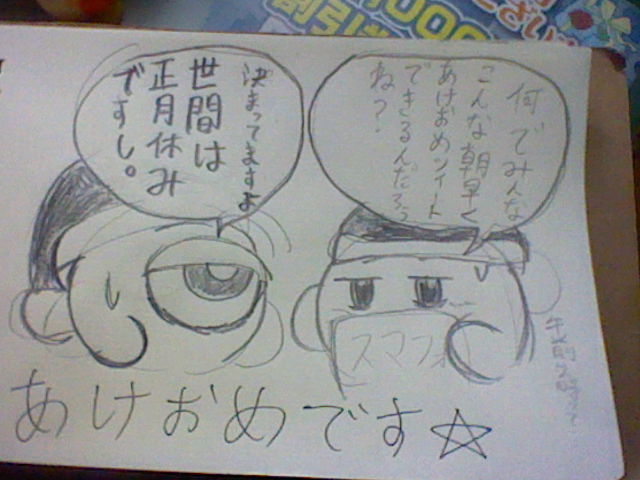 何でみんな
こんな朝早く
あけおめツイート
できるんだろう
ね？
決まってますよ
世間は
正月休み
ですし。
スマフォ
あけおめです☆
割引
1000
ください